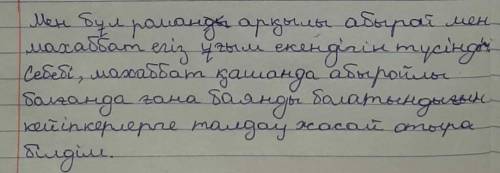 Мен бұл романды арқылы абырой мен
махаббат егіз ұғым екендігін түсінді
Себебі, махаббат қашанда абыройлы
болғанда ғана баянды болатындығын
кейіпкерлерге талдау жасай отыра
білдім.